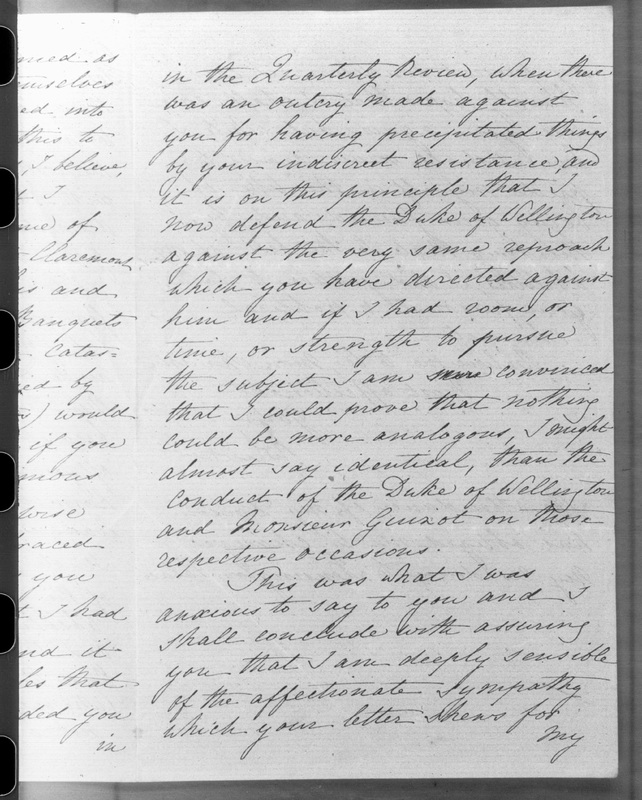 nced as
mselves
ed into
this to
, I believe,
t I
me of
Claremont
is and
Banquets
Catas=
ied by
) would
if you
wise
raced
you
t I had
nd it
les that
ded you
in
in the Quarterly Review, when there
was an outcry made against
you for having precipitated things
by your indiscreet resistance, and
it is on this principle that I
now defend the Duke of Wellington
against the very same reproach
which you have directed against
him and if I had room, or
time, or strength to pursue
the subject I am convinced
that I could prove that nothing
could be more analogous, I might
almost say identical, than the
Conduct of the Duke of Wellington
and Monsieur Guizot on those
respective occasions.
This was what I was
anxious to say to you and I
shall conclude with assuring
you that I am deeply sensible
of the affectionate sympathy
which your letter shews for
my